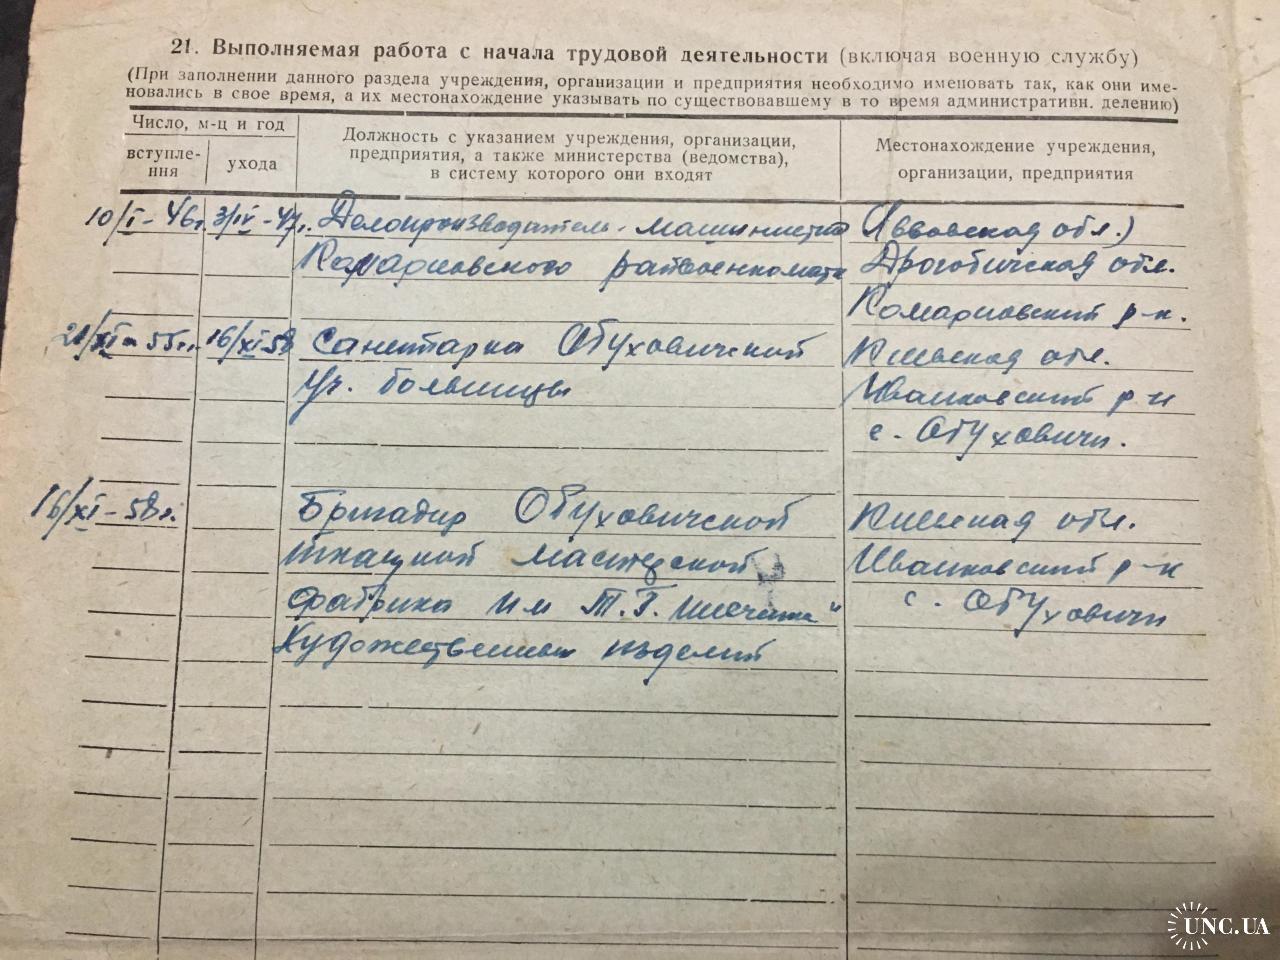 21. Выполняемая работа с начала трудовой деятельности (включая военную службу)
(При заполнении данного раздела учреждения, организации и предприятия необходимо именовать так, как они име-
новались в свое время, а их местонахождение указывать по существовавшему в то время административн. делению)
Число, м-ц и год
вступле-
ния
ухода
Должность с указанием учреждения, организации,
предприятия, а также министерства (ведомства),
в систему которого они входят
Местонахождение учреждения,
организации, предприятия
10/I-46г. 3/IV-47г. Делопроизводитель-машинистка (Львовская обл.)
Комарновского райвоенкомата Дрогобичская обл.
Комарновский р-н.
21/XI-55г. 16/XI 58 Санитарка Обуховической Киевская обл.
Уч. больницы Иванковский р-н
с. Обуховичи.
16/XI-58г. Бригадир Обуховической Киевская обл.
ткацкой мастерской Иванковский р-н
фабрики им Т.Г. с. Обуховичи
Художественных изделий
UNC.UA